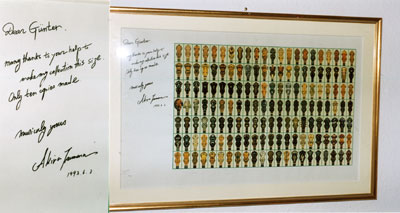 Dear Günter.
many thanks to your help to
make my collection this size.
Only ten copies made.
musically yours
Akira
1992. 6. 2